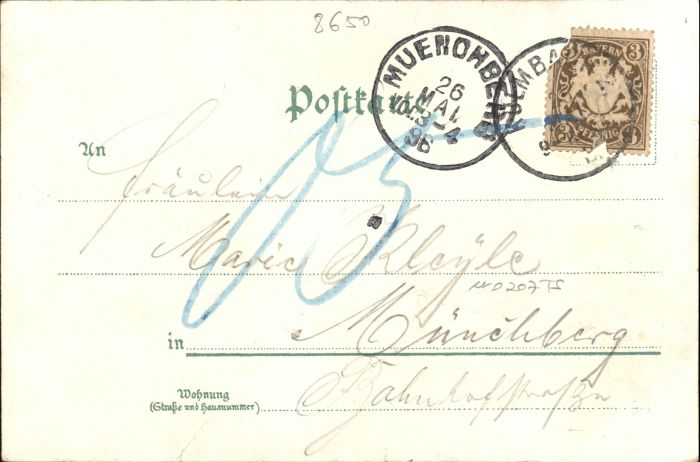 8650
MUENCHBERG
26
MAI.
3-4
98
KULMBA
BAYERN
3
3 PFENNIG 3
Postkarte
An
Fräulein
Marie Kleyle
in Münchberg
Wohnung
(Straße und Hausnummer)
Bahnhofstraße